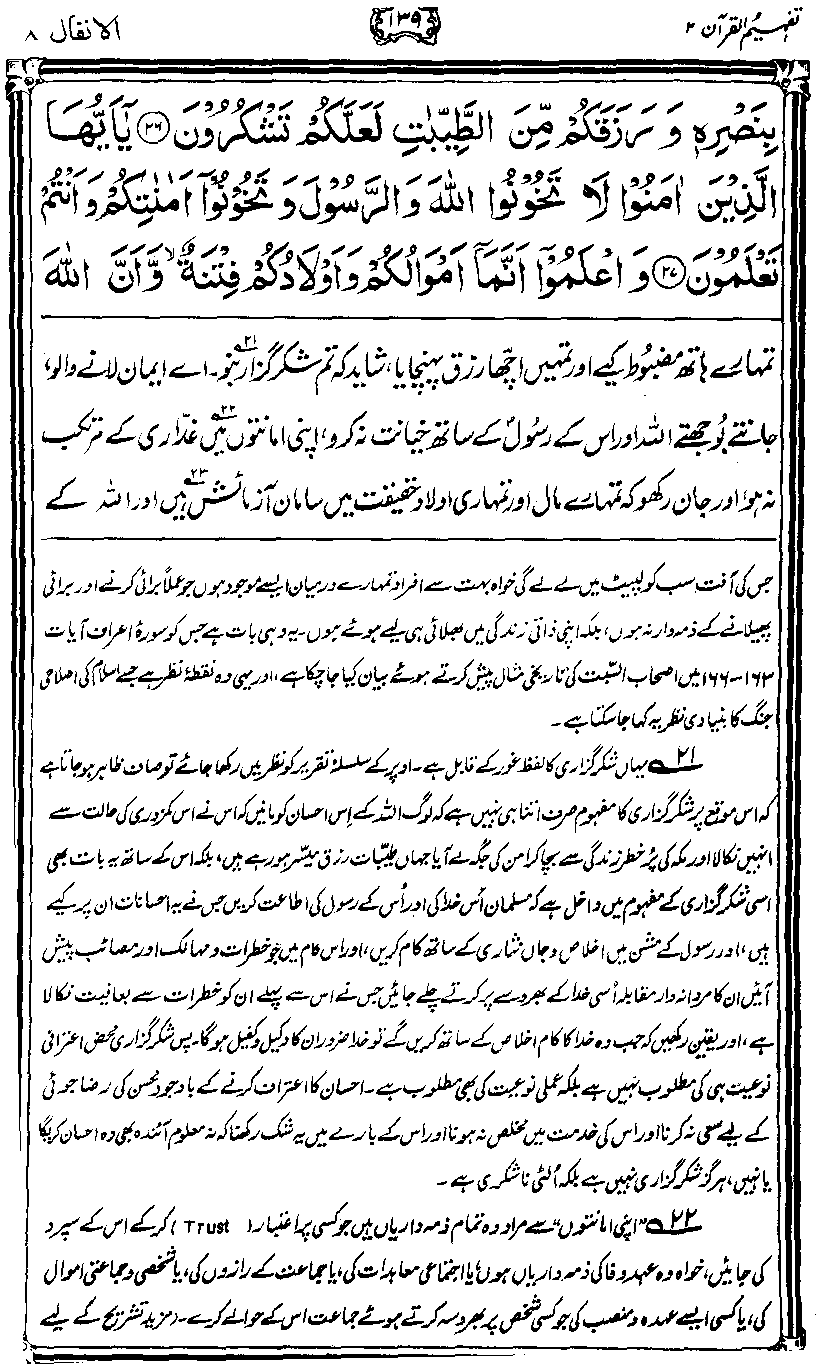 تفہیم القرآن ۲
۱۳۹
الانفال ۸
بِنَصْرِهٖ وَ رَزَقَكُمْ مِّنَ الطَّیِّبٰتِ لَعَلَّكُمْ تَشْكُرُوْنَ ۝۲۶ یٰۤاَیُّهَا
الَّذِیْنَ اٰمَنُوْا لَا تَخُوْنُوا اللّٰهَ وَ الرَّسُوْلَ وَ تَخُوْنُوْۤا اَمٰنٰتِكُمْ وَ اَنْتُمْ
تَعْلَمُوْنَ ۝۲۷ وَ اعْلَمُوْۤا اَنَّمَاۤ اَمْوَالُكُمْ وَ اَوْلَادُكُمْ فِتْنَةٌ ۙ وَّ اَنَّ اللّٰهَ
تمہارے ہاتھ مضبُوط کیے اور تمہیں اچھا رزق پہنچایا، شاید کہ تم شکر گزار بنو۲۱۔ اے ایمان لانے والو،
جانتے بُوجھتے اللہ اور اس کے رسُولؐ کے ساتھ خیانت نہ کرو، اپنی امانتوں۲۲ میں غدّاری کے مرتکب
نہ ہو، اور جان رکھو کہ تمہارے مال اور تمہاری اولاد حقیقت میں سامانِ آزمائش۲۳ ہیں اور اللہ کے
جس کی آفت سب کو لپیٹ میں لے لے گی خواہ بہت سے افراد تمہارے درمیان ایسے موجود ہوں جو عملاً برائی کرنے اور برائی
پھیلانے کے ذمہ دار نہ ہوں، بلکہ اپنی ذاتی زندگی میں بھلائی ہی لیے ہوئے ہوں۔ یہ وہی بات ہے جس کو سورۂ اعراف آیات
۱۶۳-۱۶۶ میں اصحاب السّبت کی تاریخی مثال پیش کرتے ہوئے بیان کیا جا چکا ہے، اور یہی وہ نقطۂ نظر ہے جسے اسلام کی اصلاحی
جنگ کا بنیادی نظریہ کہا جا سکتا ہے۔
۲۱ یہاں شکر گزاری کا لفظ غور کے قابل ہے۔ اوپر کے سلسلۂ تقریر کو نظر میں رکھا جائے تو صاف ظاہر ہو جاتا ہے
کہ اس موقع پر شکر گزاری کا مفہوم صرف اتنا ہی نہیں ہے کہ لوگ اللہ کے اِس احسان کو مانیں کہ اس نے اس کمزوری کی حالت سے
انہیں نکالا اور مکہ کی پُر خطر زندگی سے بچا کر امن کی جگہ لے آیا جہاں طیّبات رزق میسّر ہو رہے ہیں، بلکہ اس کے ساتھ یہ بات بھی
اسی شکر گزاری کے مفہوم میں داخل ہے کہ مسلمان اُس خدا کی اور اُس کے رسول کی اطاعت کریں جس نے یہ احسانات ان پر کیے
ہیں، اور رسول کے مشن میں اخلاص و جاں نثاری کے ساتھ کام کریں، اور اس کام میں جو خطرات و مہالک اور مصائب پیش
آئیں ان کا مردانہ وار مقابلہ اُسی خدا کے بھروسے پر کرتے چلے جائیں جس نے اس سے پہلے ان کو خطرات سے بعافیت نکالا
ہے، اور یقین رکھیں کہ جب وہ خدا کا کام اخلاص کے ساتھ کریں گے تو خدا ضرور ان کا وکیل و کفیل ہوگا۔ پس شکر گزاری محض اعترافی
نوعیت ہی کی مطلوب نہیں ہے بلکہ عملی نوعیت کی بھی مطلوب ہے۔ احسان کا اعتراف کرنے کے باوجود محسن کی رضا جوئی
کے لیے سعی نہ کرنا اور اس کی خدمت میں مخلص نہ ہونا اور اس کے بارے میں یہ شک رکھنا کہ نہ معلوم آئندہ بھی وہ احسان کریگا
یا نہیں، ہرگز شکر گزاری نہیں ہے بلکہ اُلٹی ناشکری ہے۔
۲۲ "اپنی امانتوں" سے مراد وہ تمام ذمہ داریاں ہیں جو کسی پر اعتبار (Trust) کر کے اس کے سپرد
کی جائیں، خواہ وہ عہد وفا کی ذمہ داریاں ہوں، یا اجتماعی معاہدات کی، یا جماعت کے رازوں کی، یا شخصی و جماعتی اموال
کی، یا کسی ایسے عہدہ و منصب کی جو کسی شخص پر بھروسہ کرتے ہوئے جماعت اس کے حوالے کرے۔ (مزید تشریح کے لیے